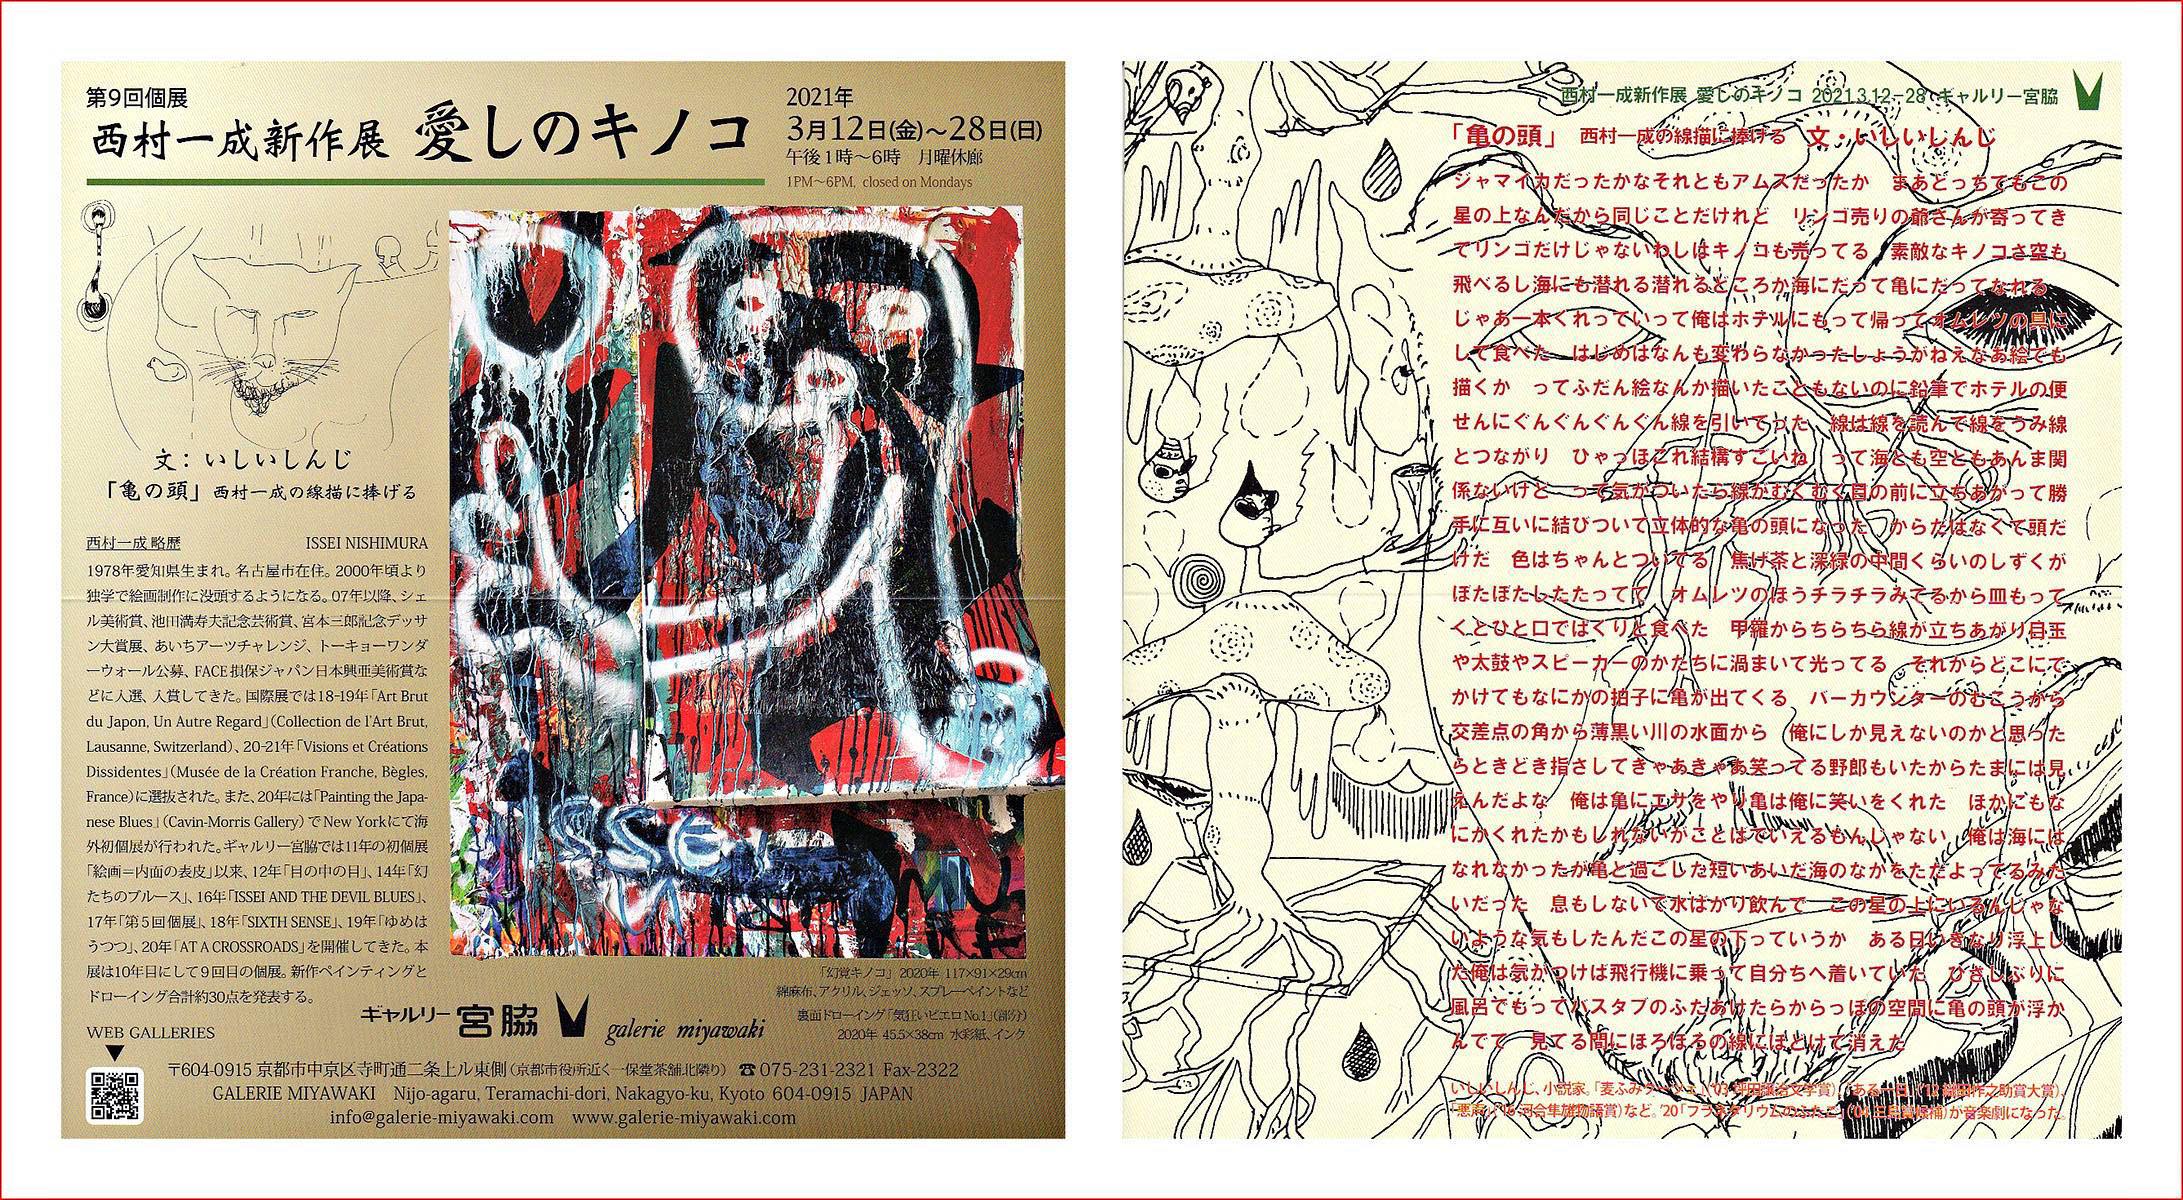 第9回個展
西村一成新作展 愛しのキノコ
2021年
3月12日(金)～28日(日)
午後1時～6時　月曜休廊
1PM～6PM, closed on Mondays
文：いしいしんじ
「亀の頭」西村一成の線描に捧げる
西村一成 略歴　ISSEI NISHIMURA
1978年愛知県生まれ。名古屋市在住。2000年頃より
独学で絵画制作に没頭するようになる。07年以降、シェ
ル美術賞、池田満寿夫記念芸術賞、宮本三郎記念デッサ
ン大賞展、あいちアーツチャレンジ、トーキョーワンダ
ーウォール公募、FACE損保ジャパン日本興亜美術賞な
どに入選、入賞してきた。国際展では18-19年「Art Brut
du Japon, Un Autre Regard」（Collection de l'Art Brut,
Lausanne, Switzerland）、20-21年「Visions et Créations
Dissidentes」（Musée de la Création Franche, Bègles,
France）に選抜された。また、20年には「Painting the Japa-
nese Blues」（Cavin-Morris Gallery）でNew Yorkにて海
外初個展が行われた。ギャルリー宮脇では11年の初個展
「絵画＝内面の表皮」以来、12年「目の中の目」、14年「幻
たちのブルース」、16年「ISSEI AND THE DEVIL BLUES」、
17年「第5回個展」、18年「SIXTH SENSE」、19年「ゆめは
うつつ」、20年「AT A CROSSROADS」を開催してきた。本
展は10年目にして9回目の個展。新作ペインティングと
ドローイング合計約30点を発表する。
ISSEI
「幻覚キノコ」2020年 117×91×29cm
綿麻布、アクリル、ジェッソ、スプレーペイントなど
裏面ドローイング「気狂いピエロNo.1」（部分）
2020年 45.5×38cm 水彩紙、インク
ギャルリー宮脇 galerie miyawaki
WEB GALLERIES
〒604-0915 京都市中京区寺町通二条上ル東側（京都市役所近く一保堂茶舗北隣り） ☎075-231-2321 Fax-2322
GALERIE MIYAWAKI Nijo-agaru, Teramachi-dori, Nakagyo-ku, Kyoto 604-0915 JAPAN
info@galerie-miyawaki.com www.galerie-miyawaki.com
西村一成新作展 愛しのキノコ 2021.3.12－28 ギャルリー宮脇
「亀の頭」 西村一成の線描に捧げる 文・いしいしんじ
ジャマイカだったかなそれともアムスだったか　まあどっちでもこの
星の上なんだから同じことだけれど　リンゴ売りの爺さんが寄ってき
てリンゴだけじゃないわしはキノコも売ってる　素敵なキノコさ空も
飛べるし海にも潜れる潜れるどころか海にだって亀にだってなれる
じゃあ一本くれっていって俺はホテルにもって帰ってオムレツの具に
して食べた　はじめはなんも変わらなかったしょうがねえなあ絵でも
描くか　ってふだん絵なんか描いたこともないのに鉛筆でホテルの便
せんにぐんぐんぐんぐん線を引いてった　線は線を読んで線をうみ線
とつながり　ひゃっほこれ結構すごいね　って海とも空ともあんま関
係ないけど　って気がついたら線がむくむく目の前に立ちあがって勝
手に互いに結びついて立体的な亀の頭になった　からだはなくて頭だ
けだ　色はちゃんとついてる　焦げ茶と深緑の中間くらいのしずくが
ぽたぽたしたたってて　オムレツのほうチラチラみてるから皿もって
くとひと口でぱくりと食べた　甲羅からちらちら線が立ちあがり目玉
や太鼓やスピーカーのかたちに渦まいて光ってる　それからどこにで
かけてもなにかの拍子に亀が出てくる　バーカウンターのむこうから
交差点の角から薄黒い川の水面から　俺にしか見えないのかと思った
らときどき指さしてきゃあきゃあ笑ってる野郎もいたからたまには見
えんだよな　俺は亀にエサをやり亀は俺に笑いをくれた　ほかにもな
にかくれたかもしれないがことばでいえるもんじゃない　俺は海には
なれなかったが亀と過ごした短いあいだ海のなかをただよってるみた
いだった　息もしないで水ばかり飲んで　この星の上にいるんじゃな
いような気もしたんだこの星の下っていうか　ある日いきなり浮上し
た俺は気がつけば飛行機に乗って自分ちへ着いていた　ひさしぶりに
風呂でもってバスタブのふたあけたらからっぽの空間に亀の頭が浮か
んでて　見てる間にほろほろの線にほどけて消えた
いしいしんじ、小説家。「麦ふみクーツェ」（'03 坪田譲治文学賞）、「ある一日」（'12 織田作之助賞大賞）、
「悪声」（'16 河合隼雄物語賞）など。'20「プラネタリウムのふたご」（'04 三島賞候補）が音楽劇になった。